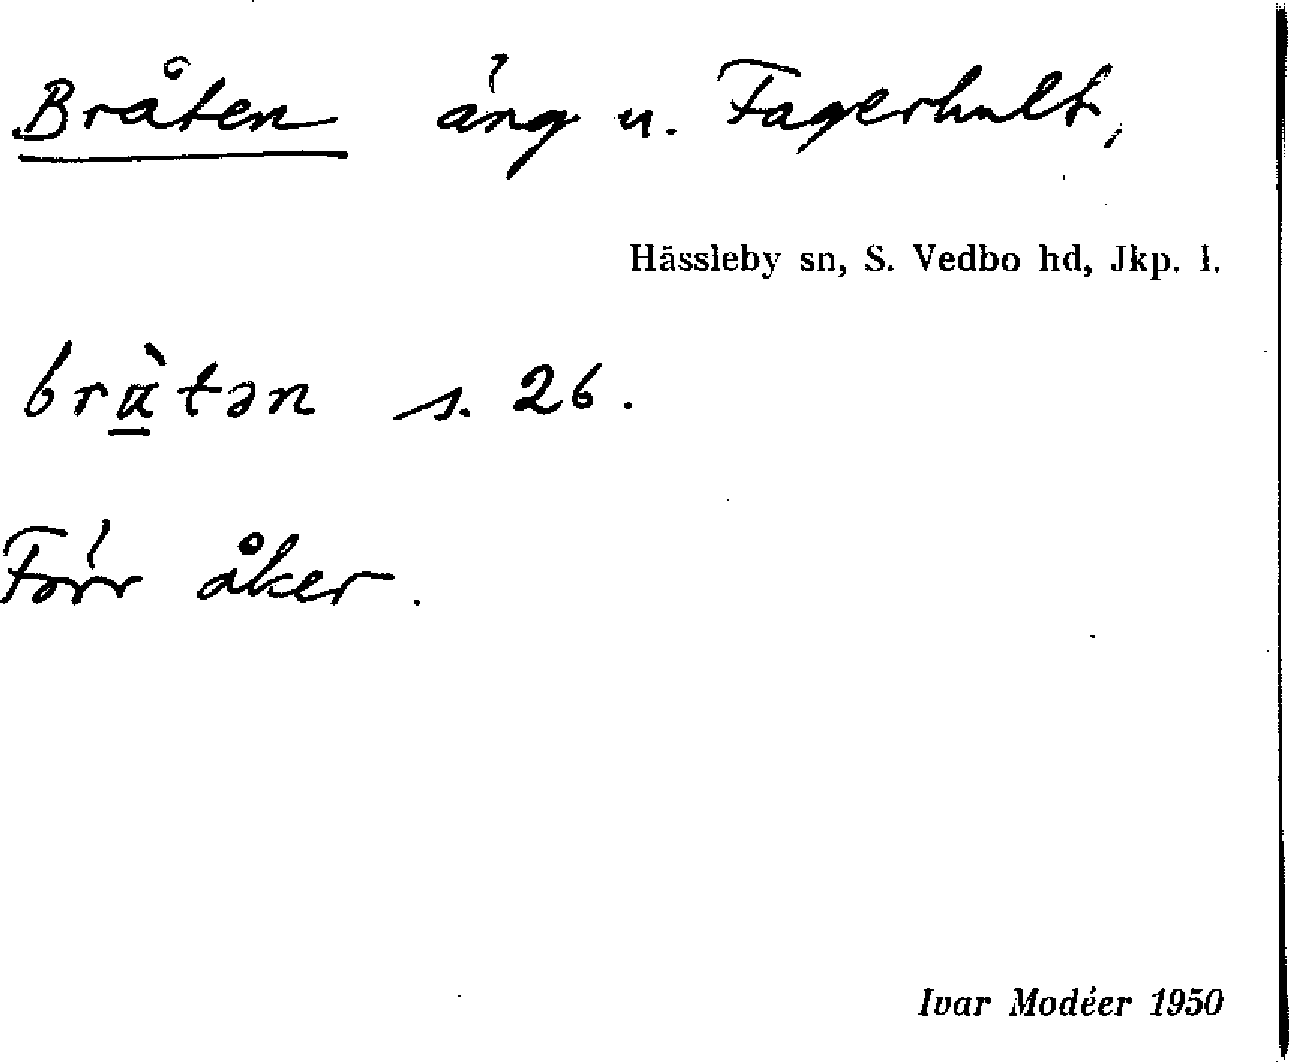 Bråten äng u. Fagerhult,
Hässleby sn, S. Vedbo hd, Jkp. l.
brὰ̱tən s. 26.
Förr åker.
Ivar Modéer 1950